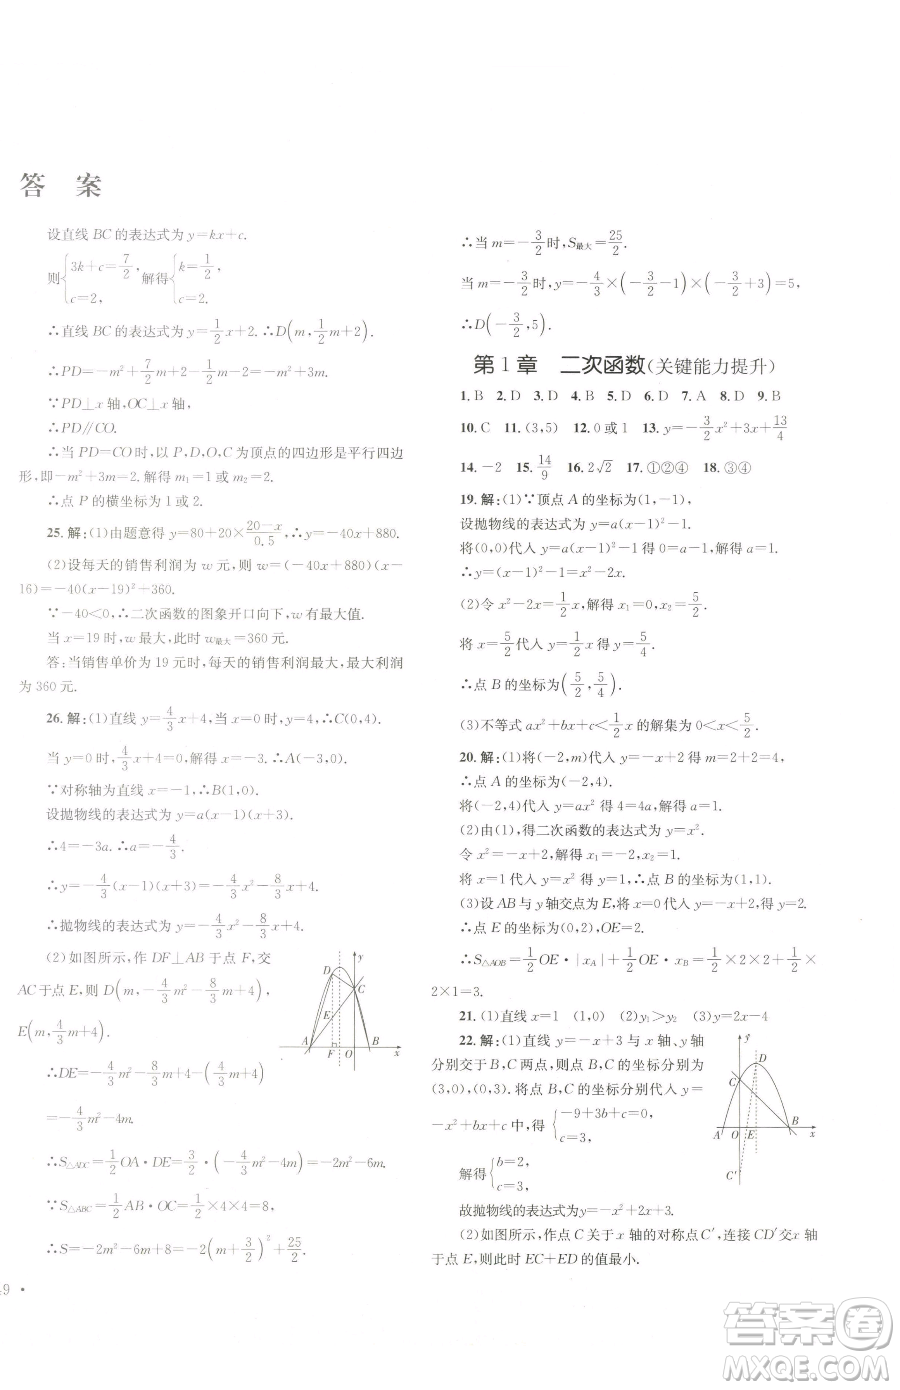 答 案
设直线 BC 的表达式为 y=kx+c.
则{3k+c=7/2, c=2, 解得{k=1/2, c=2.
∴直线 BC 的表达式为 y=1/2x+2. ∴D(m,1/2m+2).
∴PD=-m²+7/2m+2-1/2m-2=-m²+3m.
∵PD⊥x 轴,OC⊥x 轴,
∴PD∥CO.
∴当 PD=CO 时,以 P,D,O,C 为顶点的四边形是平行四边
形,即-m²+3m=2. 解得 m₁=1,m₂=2.
∴点 P 的横坐标为 1 或 2.
25. 解:(1)由题意得 y=80+20×(20-x)/0.5,∴y=-40x+880.
(2)设每天的销售利润为 w 元,则 w=(-40x+880)(x-
16)=-40(x-19)²+360.
∵-40<0,∴二次函数的图象开口向下,w 有最大值.
当 x=19 时,w 最大,此时 w最大=360 元.
答:当销售单价为 19 元时,每天的销售利润最大,最大利润
为 360 元.
26. 解:(1)直线 y=4/3x+4,当 x=0 时,y=4,∴C(0,4).
当 y=0 时,4/3x+4=0,解得 x=-3. ∴A(-3,0).
∵对称轴为直线 x=-1,∴B(1,0).
设抛物线的表达式为 y=a(x-1)(x+3).
∴4=-3a. ∴a=-4/3.
∴y=-4/3(x-1)(x+3)=-4/3x²-8/3x+4.
∴抛物线的表达式为 y=-4/3x²-8/3x+4.
(2)如图所示,作 DF⊥AB 于点 F,交
AC 于点 E,则 D(m,-4/3m²-8/3m+4),
E(m,4/3m+4).
y D C E A F O B x
∴DE=-4/3m²-8/3m+4-4/3m-4
=-4/3m²-4m.
∴S△ADC=1/2OA·DE=3/2·(-4/3m²-4m)=-2m²-6m.
∵S△ABC=1/2AB·OC=1/2×4×4=8,
∴S=-2m²-6m+8=-2(m+3/2)²+25/2.
49 ·
∴当 m=-3/2时,S最大=25/2.
当 m=-3/2时,y=-4/3×(-3/2-1)×(-3/2+3)=5,
∴D(-3/2,5).
第 1 章 二次函数(关键能力提升)
1. B 2. D 3. D 4. B 5. D 6. D 7. A 8. D 9. B
10. C 11. (3,5) 12. 0 或 1 13. y=-3/2x²+13/4
14. -2 15. 14/9 16. 2√2 17. ①②④ 18. ③④
19. 解:(1)∵顶点 A 的坐标为(1,-1),
设抛物线的表达式为 y=a(x-1)²-1.
将(0,0)代入得 0=a(0-1)²-1,解得 a=1.
∴抛物线的表达式为 y=(x-1)²-1=x²-2x.
(2)令 x²-2x=1/2x,解得 x₁=0,x₂=5/2.
将 x=5/2代入 y=1/2x 得 y=5/4,
∴点 B 的坐标为(5/2,5/4).
(3)不等式 ax²+bx+c<1/2x 的解集为 0<x<5/2.
20. 解:(1)将(-2,m)代入 y=-x+2 得 m=2+2=4,
∴点 A 的坐标为(-2,4).
将(-2,4)代入 y=ax² 得 4=4a,解得 a=1.
(2)由(1),得二次函数的表达式为 y=x².
令 x²=-x+2,解得 x₁=-2,x₂=1.
将 x=1 代入 y=-x+2 得 y=1. ∴点 B 的坐标为(1,1).
(3)设 AB 与 y 轴交点为 E,将 x=0 代入 y=-x+2 得 y=2,
∴点 E 的坐标为(0,2),OE=2.
∴S△AOB=1/2OE·|xA|+1/2OE·xB=1/2×2×2+1/2×
2×1=3.
21. (1)直线 x=1 (1,0) (2)y₁>y₂ (3)y=2x-4
22. 解:(1)直线 y=-x+3 与 x 轴、y 轴
分别交于 B,C 两点,则点 B,C 的坐标分别为
(3,0),(0,3). 将点 B,C 的坐标分别代入 y=
-x²+bx+c 中,得{-9+3b+c=0, c=3.
解得{b=2, c=3,
y D C A O E B x C′
故抛物线的表达式为y=-x²+2x+3.
(2)如图所示,作点 C 关于 x 轴的对称点 C′,连接 CD′交x轴
于点 E,则此时 EC+ED 的值最小.
答案圈
MXQE.COM